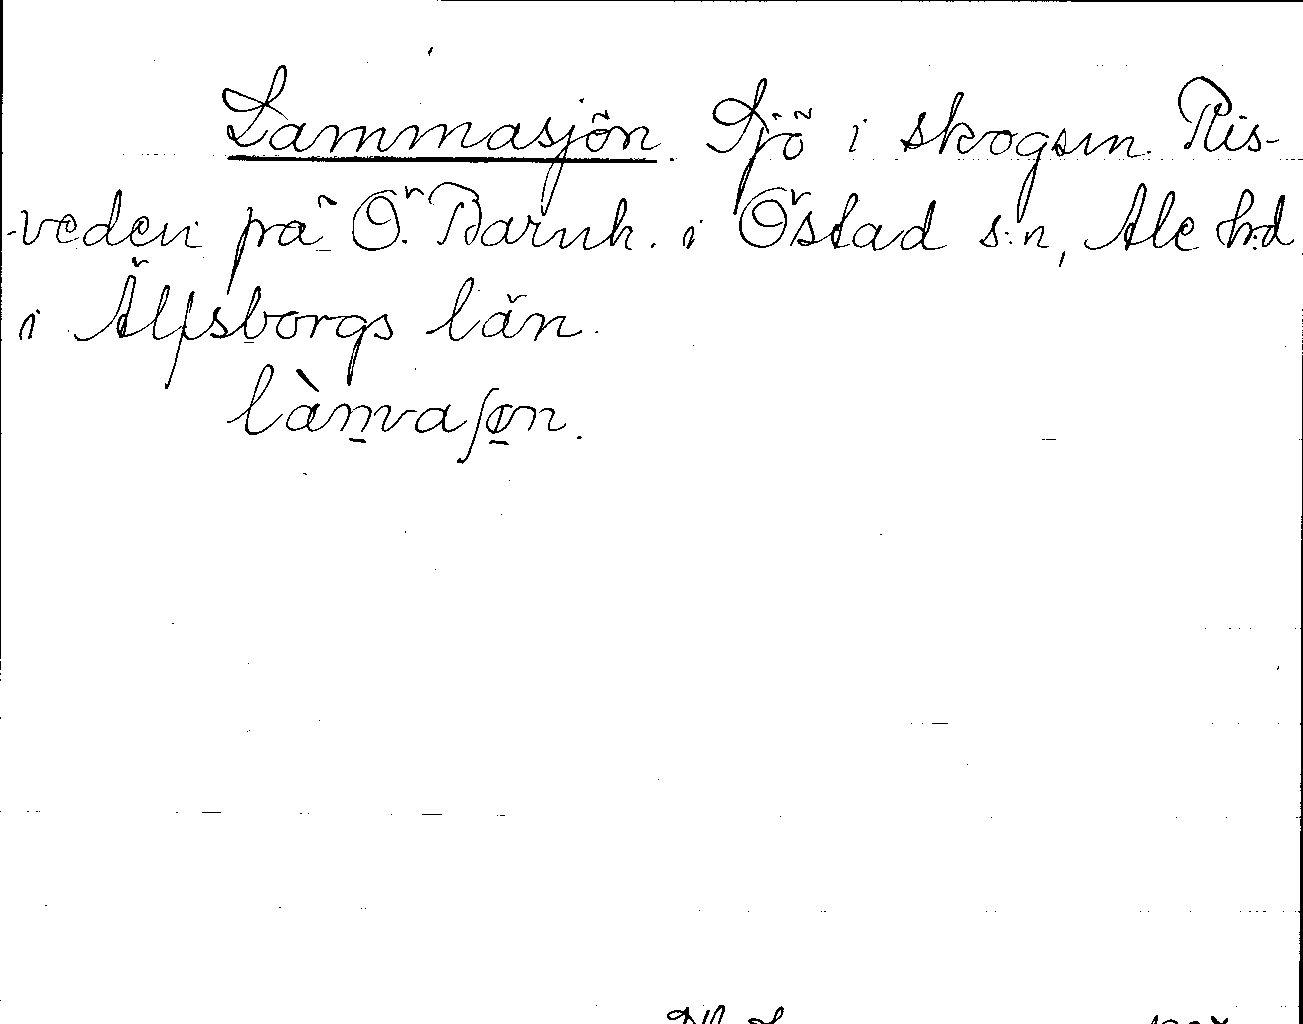 Lammasjön. Sjö i skogsm. Ris-
veden på Ö. Barnk. i Östad s:n, Ale h:d
i Älfsborgs län.
làm̱vaʃø̱n.